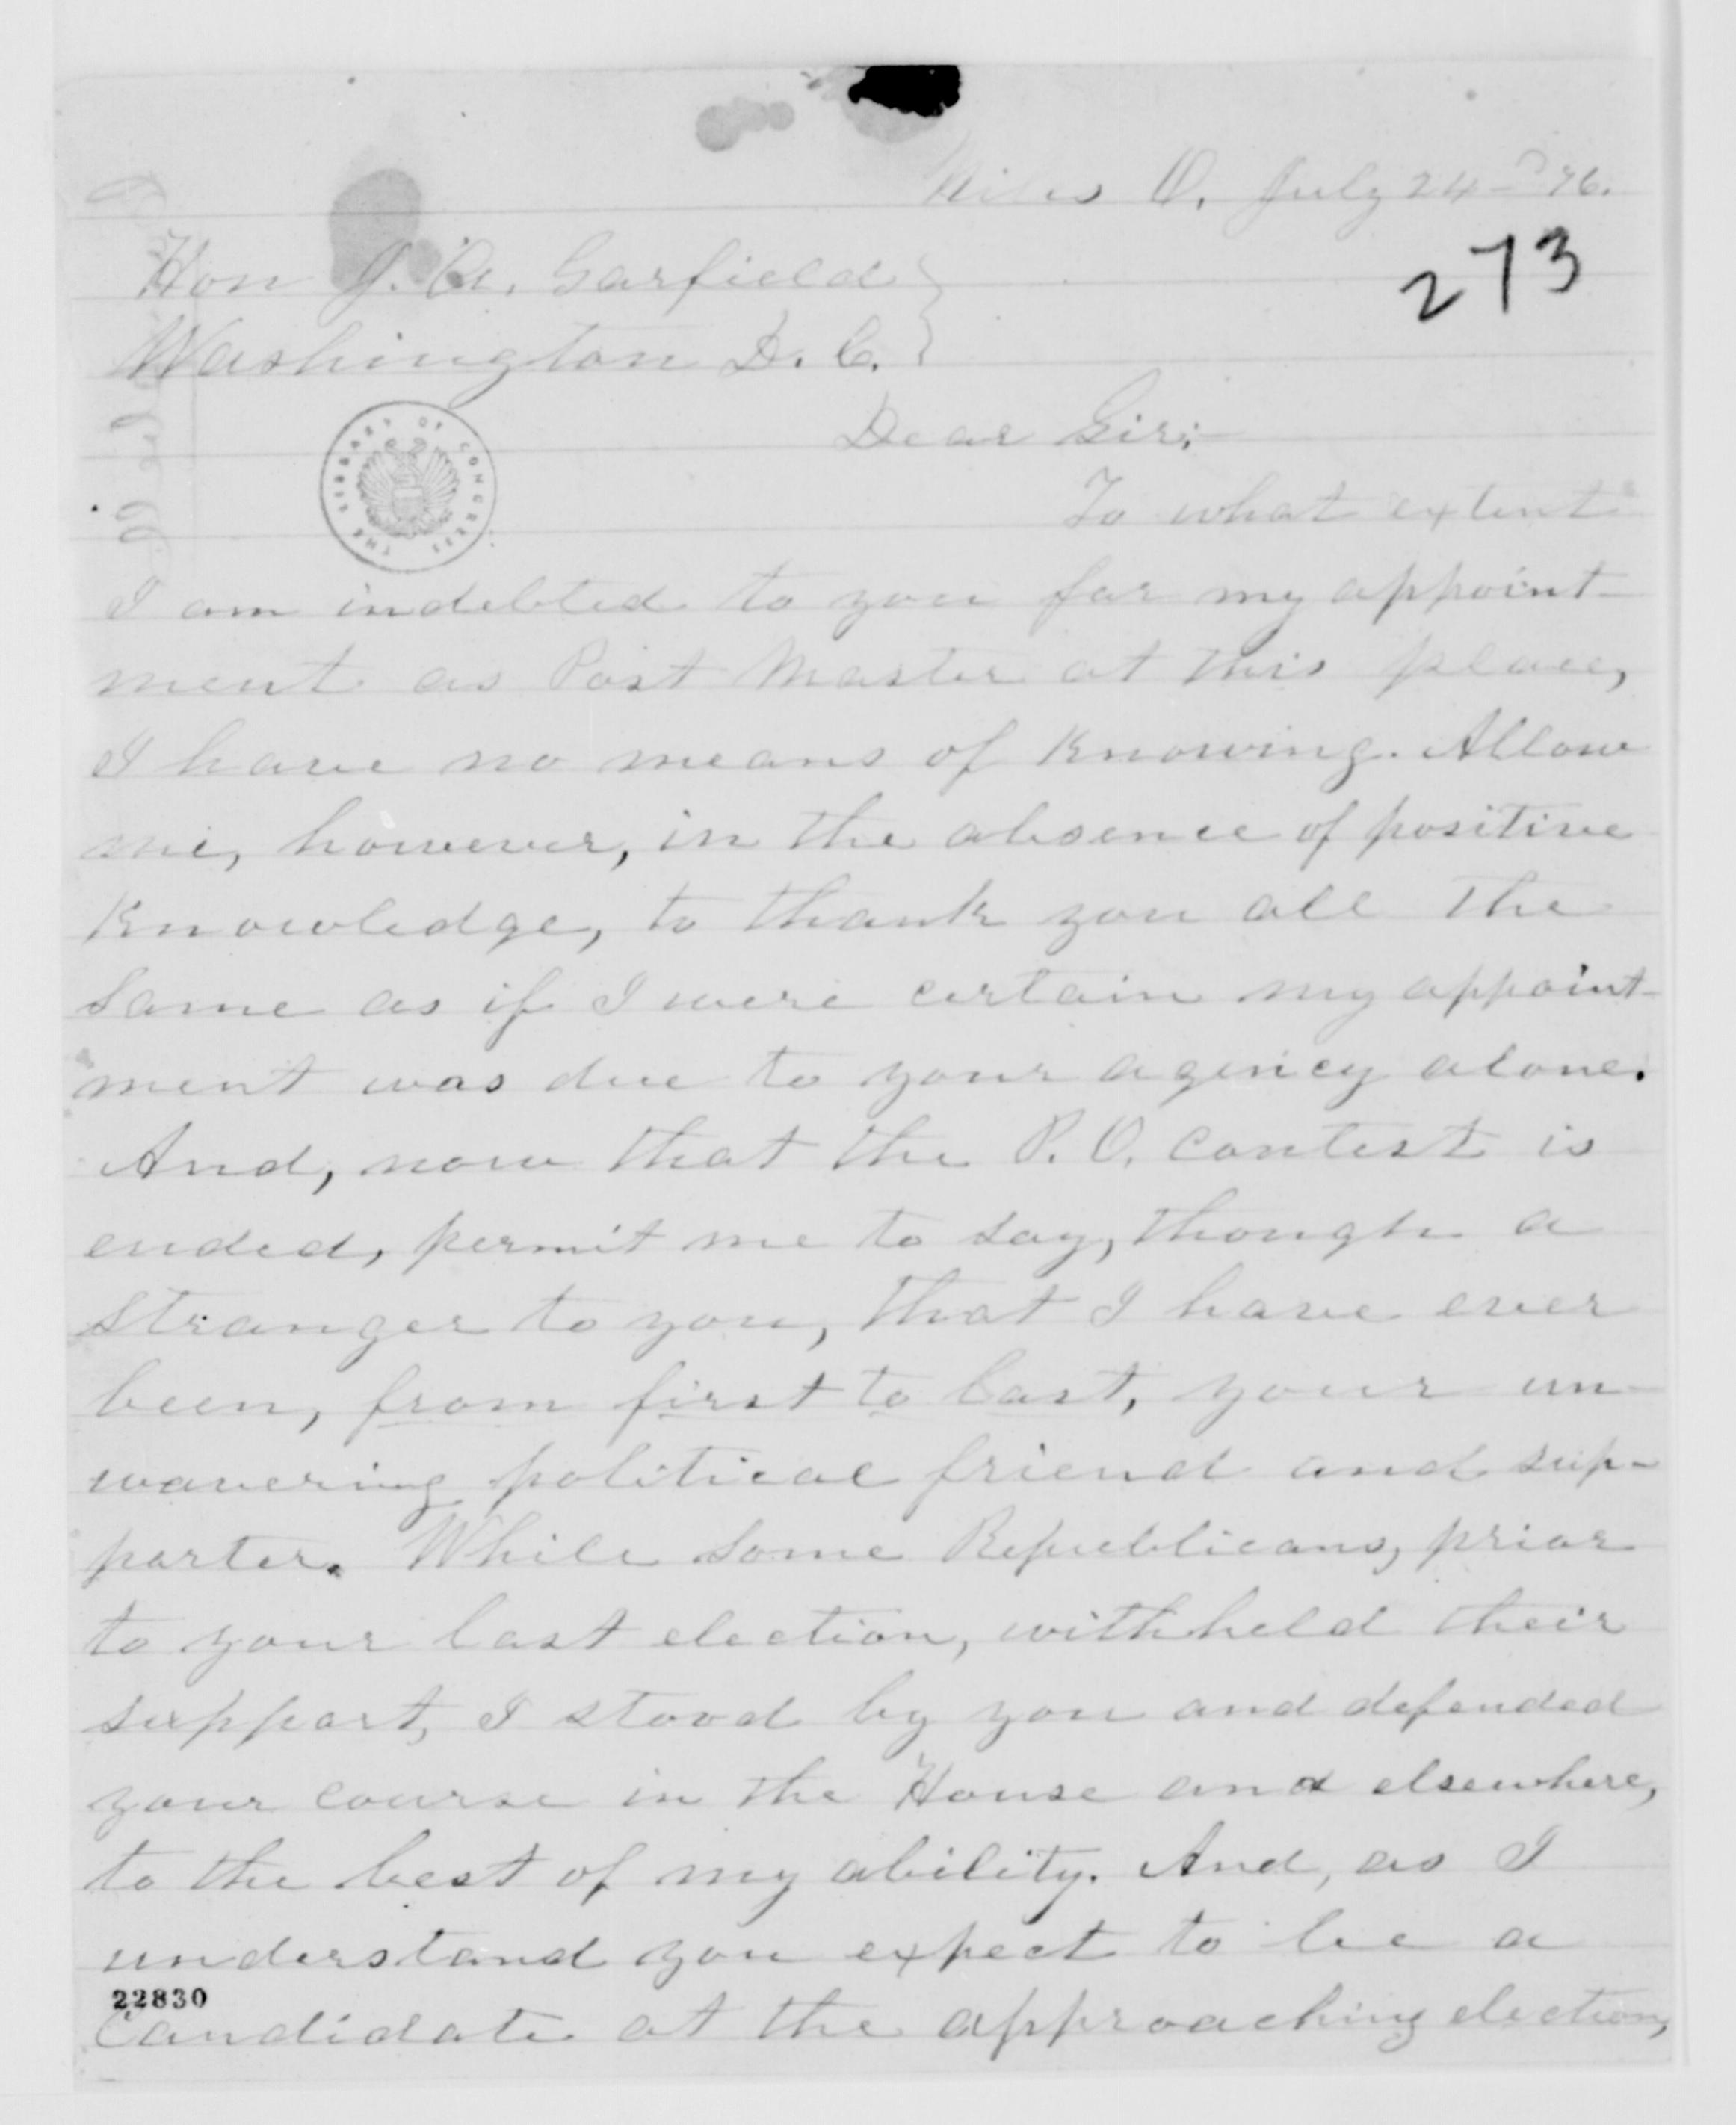 Niles O. July 24 - '76.
273
Hon J. A. Garfield
Washington D. C.
Dear Sir:-
THE LIBRARY OF CONGRESS
To what extent
I am indebted to you for my appoint-
ment as Post Master at this place,
I have no means of knowing. Allow
me, however, in the absence of positive
knowledge, to thank you all the
same as if I were certain my appoint-
ment was due to your agency alone.
And, now that the P. O. contest is
ended, permit me to say, though a
stranger to you, that I have ever
been, from first to last, your un-
wavering political friend and sup-
porter. While some Republicans, prior
to your last election, withheld their
support, I stood by you and defended
your course in the House and elsewhere,
to the best of my ability. And, as I
understand you expect to be a
22830
Candidate at the approaching election,